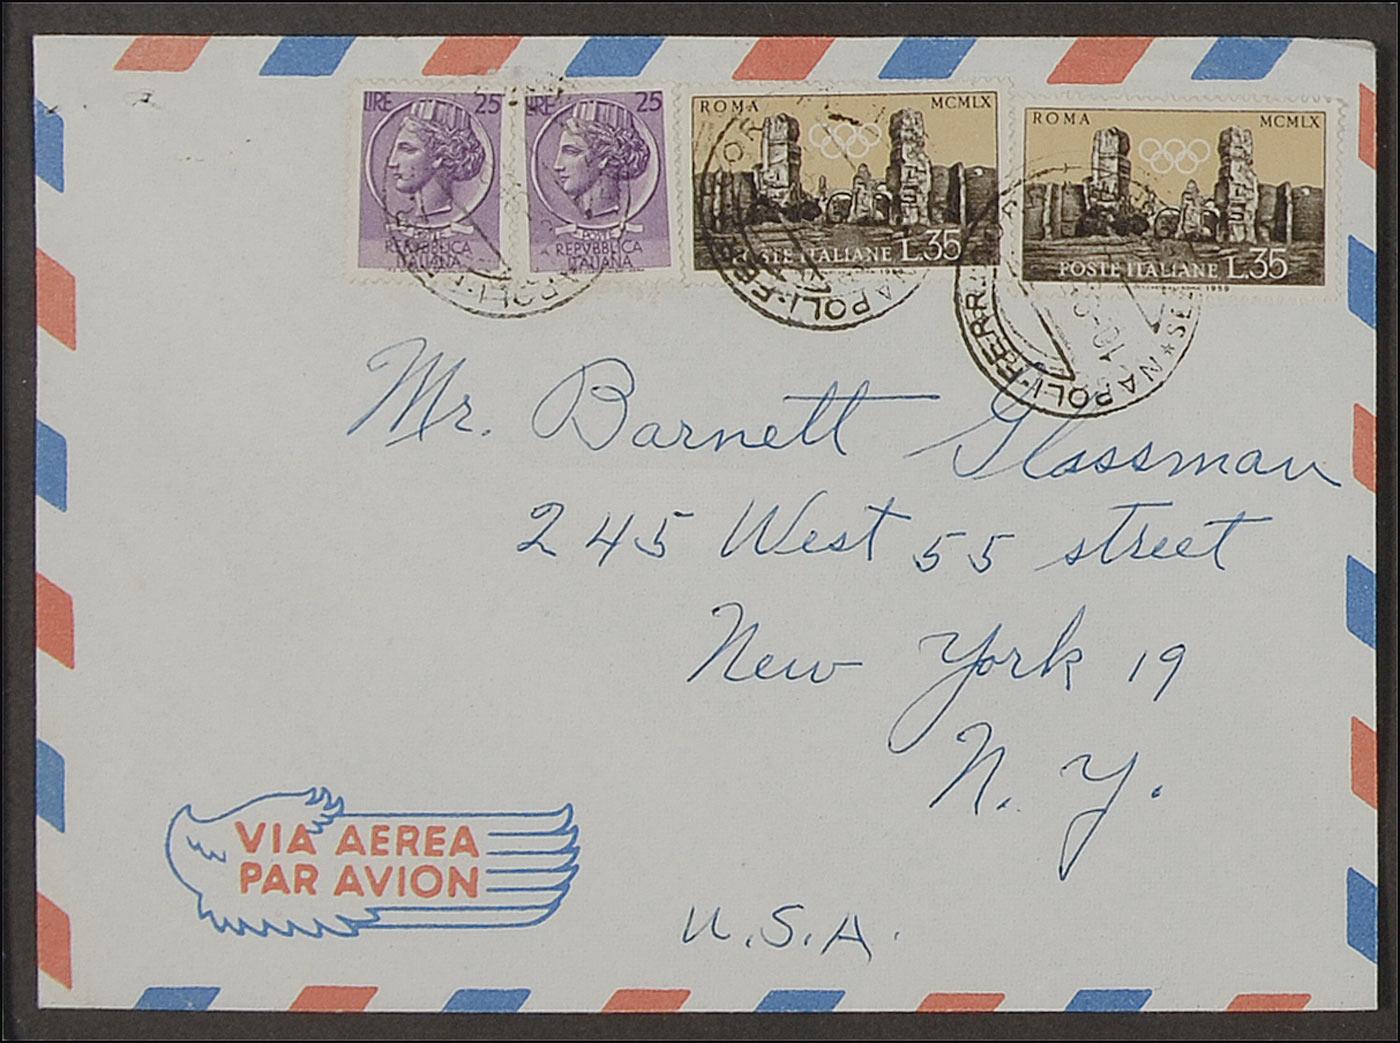 LIRE 25
POSTE
REPVBBLICA
ITALIANA
LIRE 25
POSTE
REPVBBLICA
ITALIANA
ROMA MCMLX
POSTE ITALIANE L.35
ROMA MCMLX
POSTE ITALIANE L.35
1959
NAPOLI-FERR
NAPOLI-FERR
NAPOLI-FERR
Mr. Barnett Glassman
245 West 55 street
New York 19
N. Y.
U.S.A.
VIA AEREA
PAR AVION